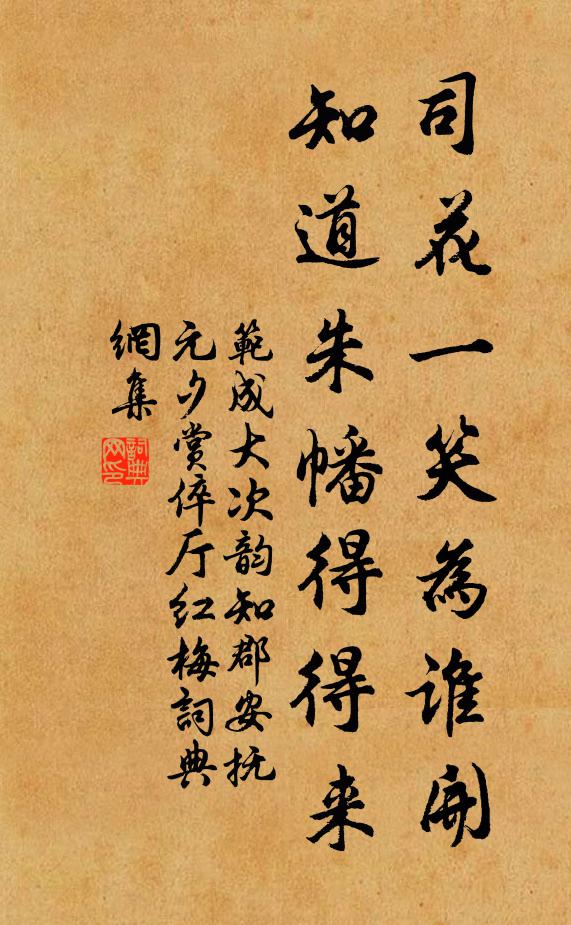 司花一笑為誰開
知道朱幡得得来
範成大次韵知郡安抚
元夕賞倅厅红梅詞典
網集
詞典
网印